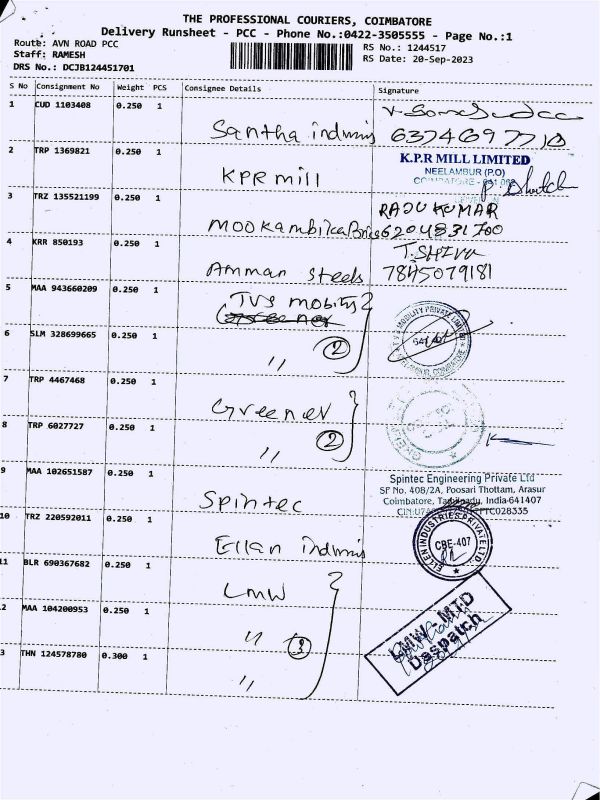 THE PROFESSIONAL COURIERS, COIMBATORE
Delivery Runsheet - PCC - Phone No.:0422-3505555 - Page No.:1
Route: AVN ROAD PCC
RS No.: 1244517
Staff: RAMESH
RS Date: 20-Sep-2023
DRS No.: DCJB124451701
S No Consignment No Weight PCS Consignee Details Signature
1 CUD 1103408 0.250 1
Santha
2 TRP 1369821 0.250 1
KPR mill
K.P.R MILL LIMITED
NEELAMBUR (P.O)
3 TRZ 135521199 0.250 1
RAJU KUMAR
Mookambika 6204831700
4 KRR 850193 0.250 1
T.SHIVA
Amman Steels 7845079181
5 MAA 943660209 0.250 1
TVS mobility
6 SLM 328699665 0.250 1
" 2
7 TRP 4467468 0.250 1
Greenev
8 TRP 6027727 0.250 1
" 2
9 MAA 102651587 0.250 1
Spintec
Spintec Engineering Private Ltd
SF No. 408/2A, Poosari Thottam, Arasur
Coimbatore, Tamilnadu, India-641407
10 TRZ 220592011 0.250 1
Ellan
ELLEN INDUSTRIES PRIVATE LTD
CBE-407
11 BLR 690367682 0.250 1
LMW
2 MAA 104200953 0.250 1
" 3
LMW-MTD
Despatch
3 THN 124578780 0.300 1
"